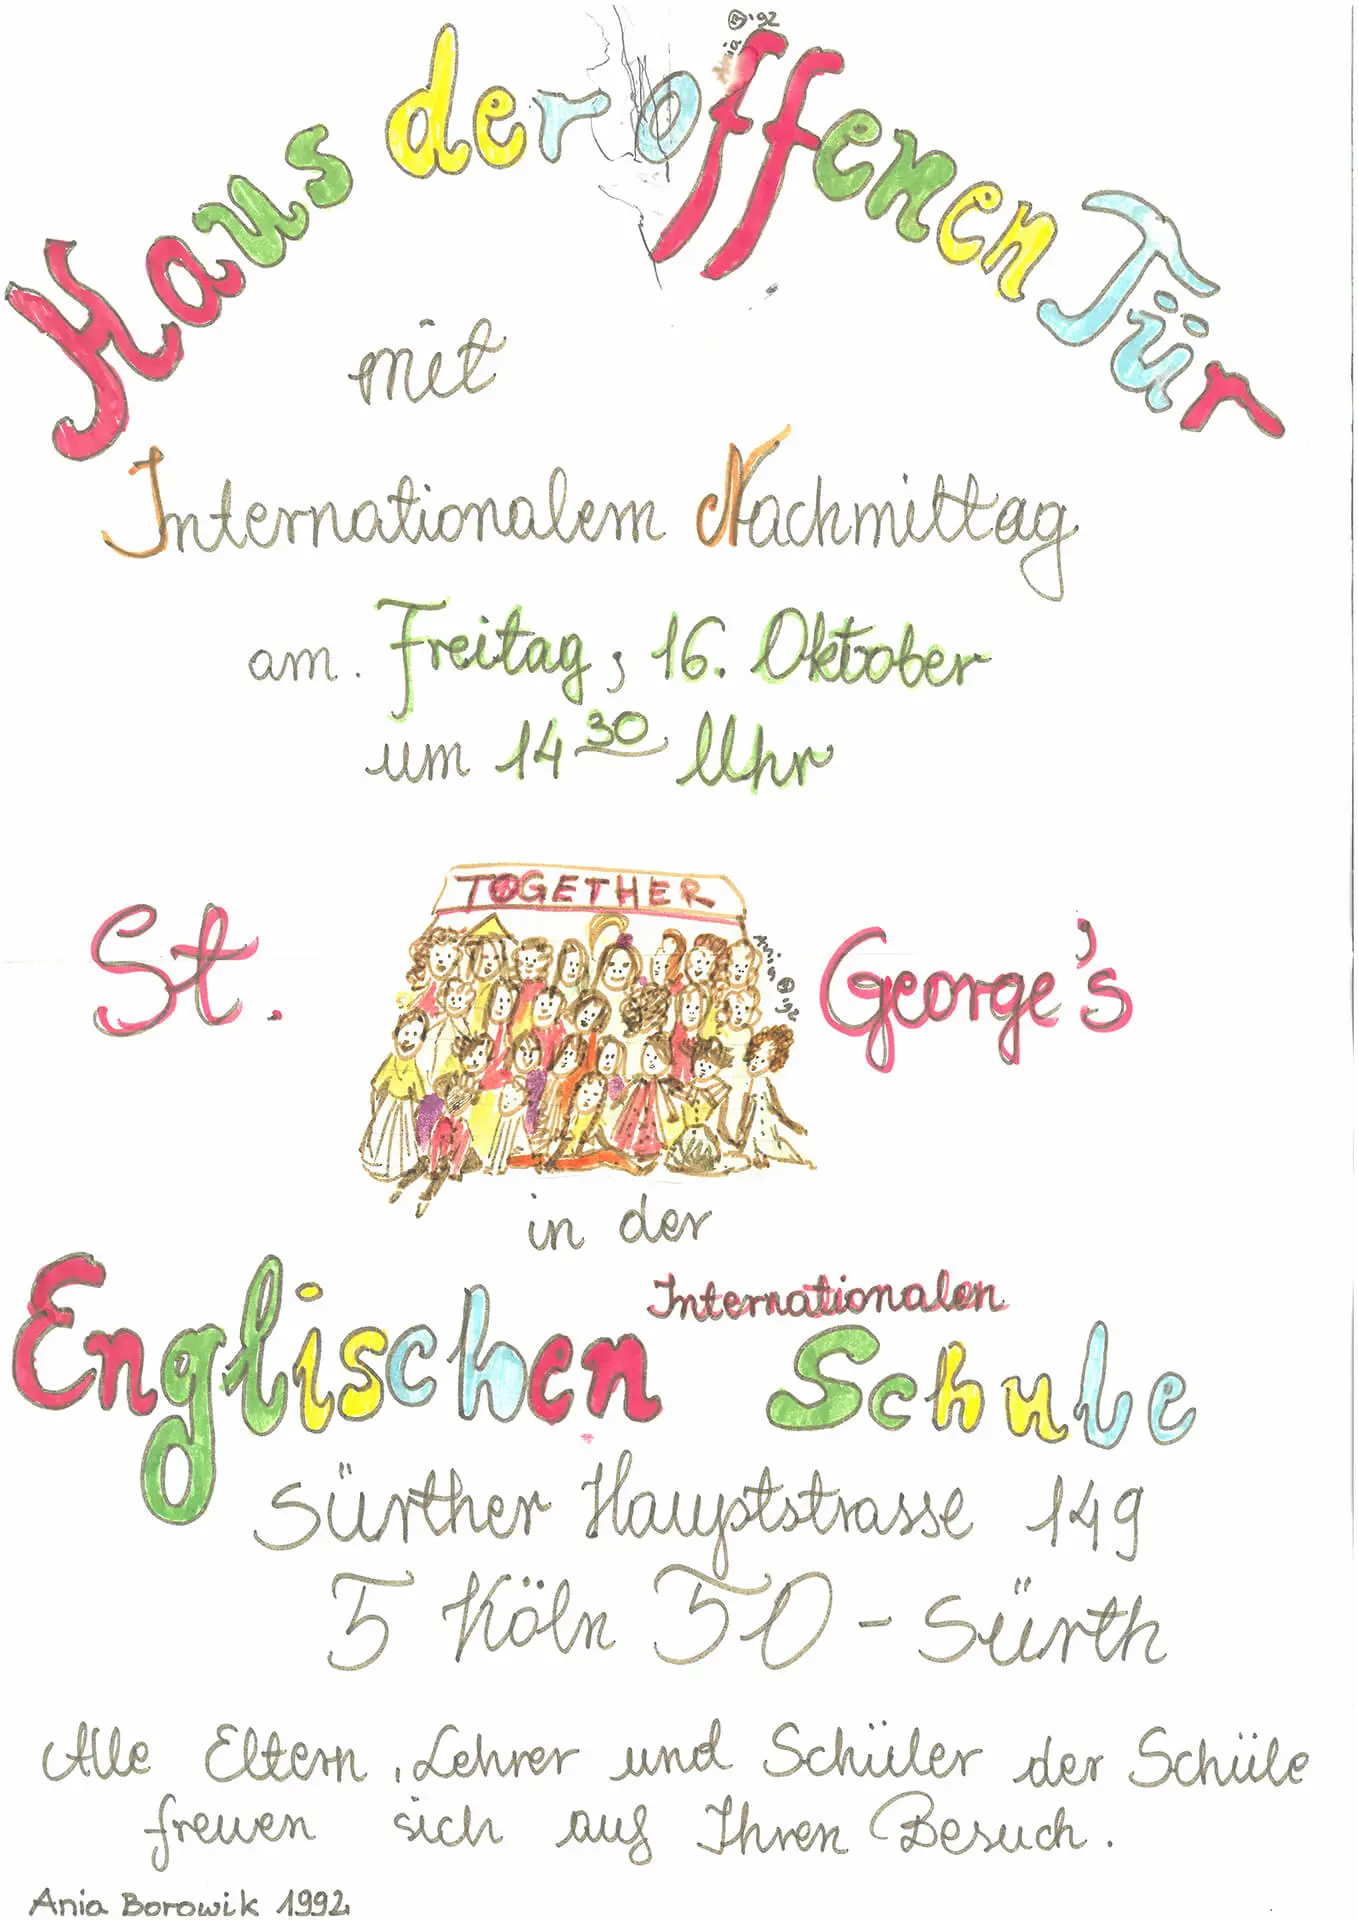 Ania ®'92
Haus der offenen Tür
mit
Internationalem Nachmittag
am. Freitag, 16. Oktober
um 14 30 Uhr
TOGETHER
Ania ®'92
St. George's
in der
Internationalen
Englischen Schule
Sürther Hauptstrasse 149
5 Köln 50 - Sürth
Alle Eltern, Lehrer und Schüler der Schüle
freuen sich auf Ihren Besuch.
Ania Borowik 1992